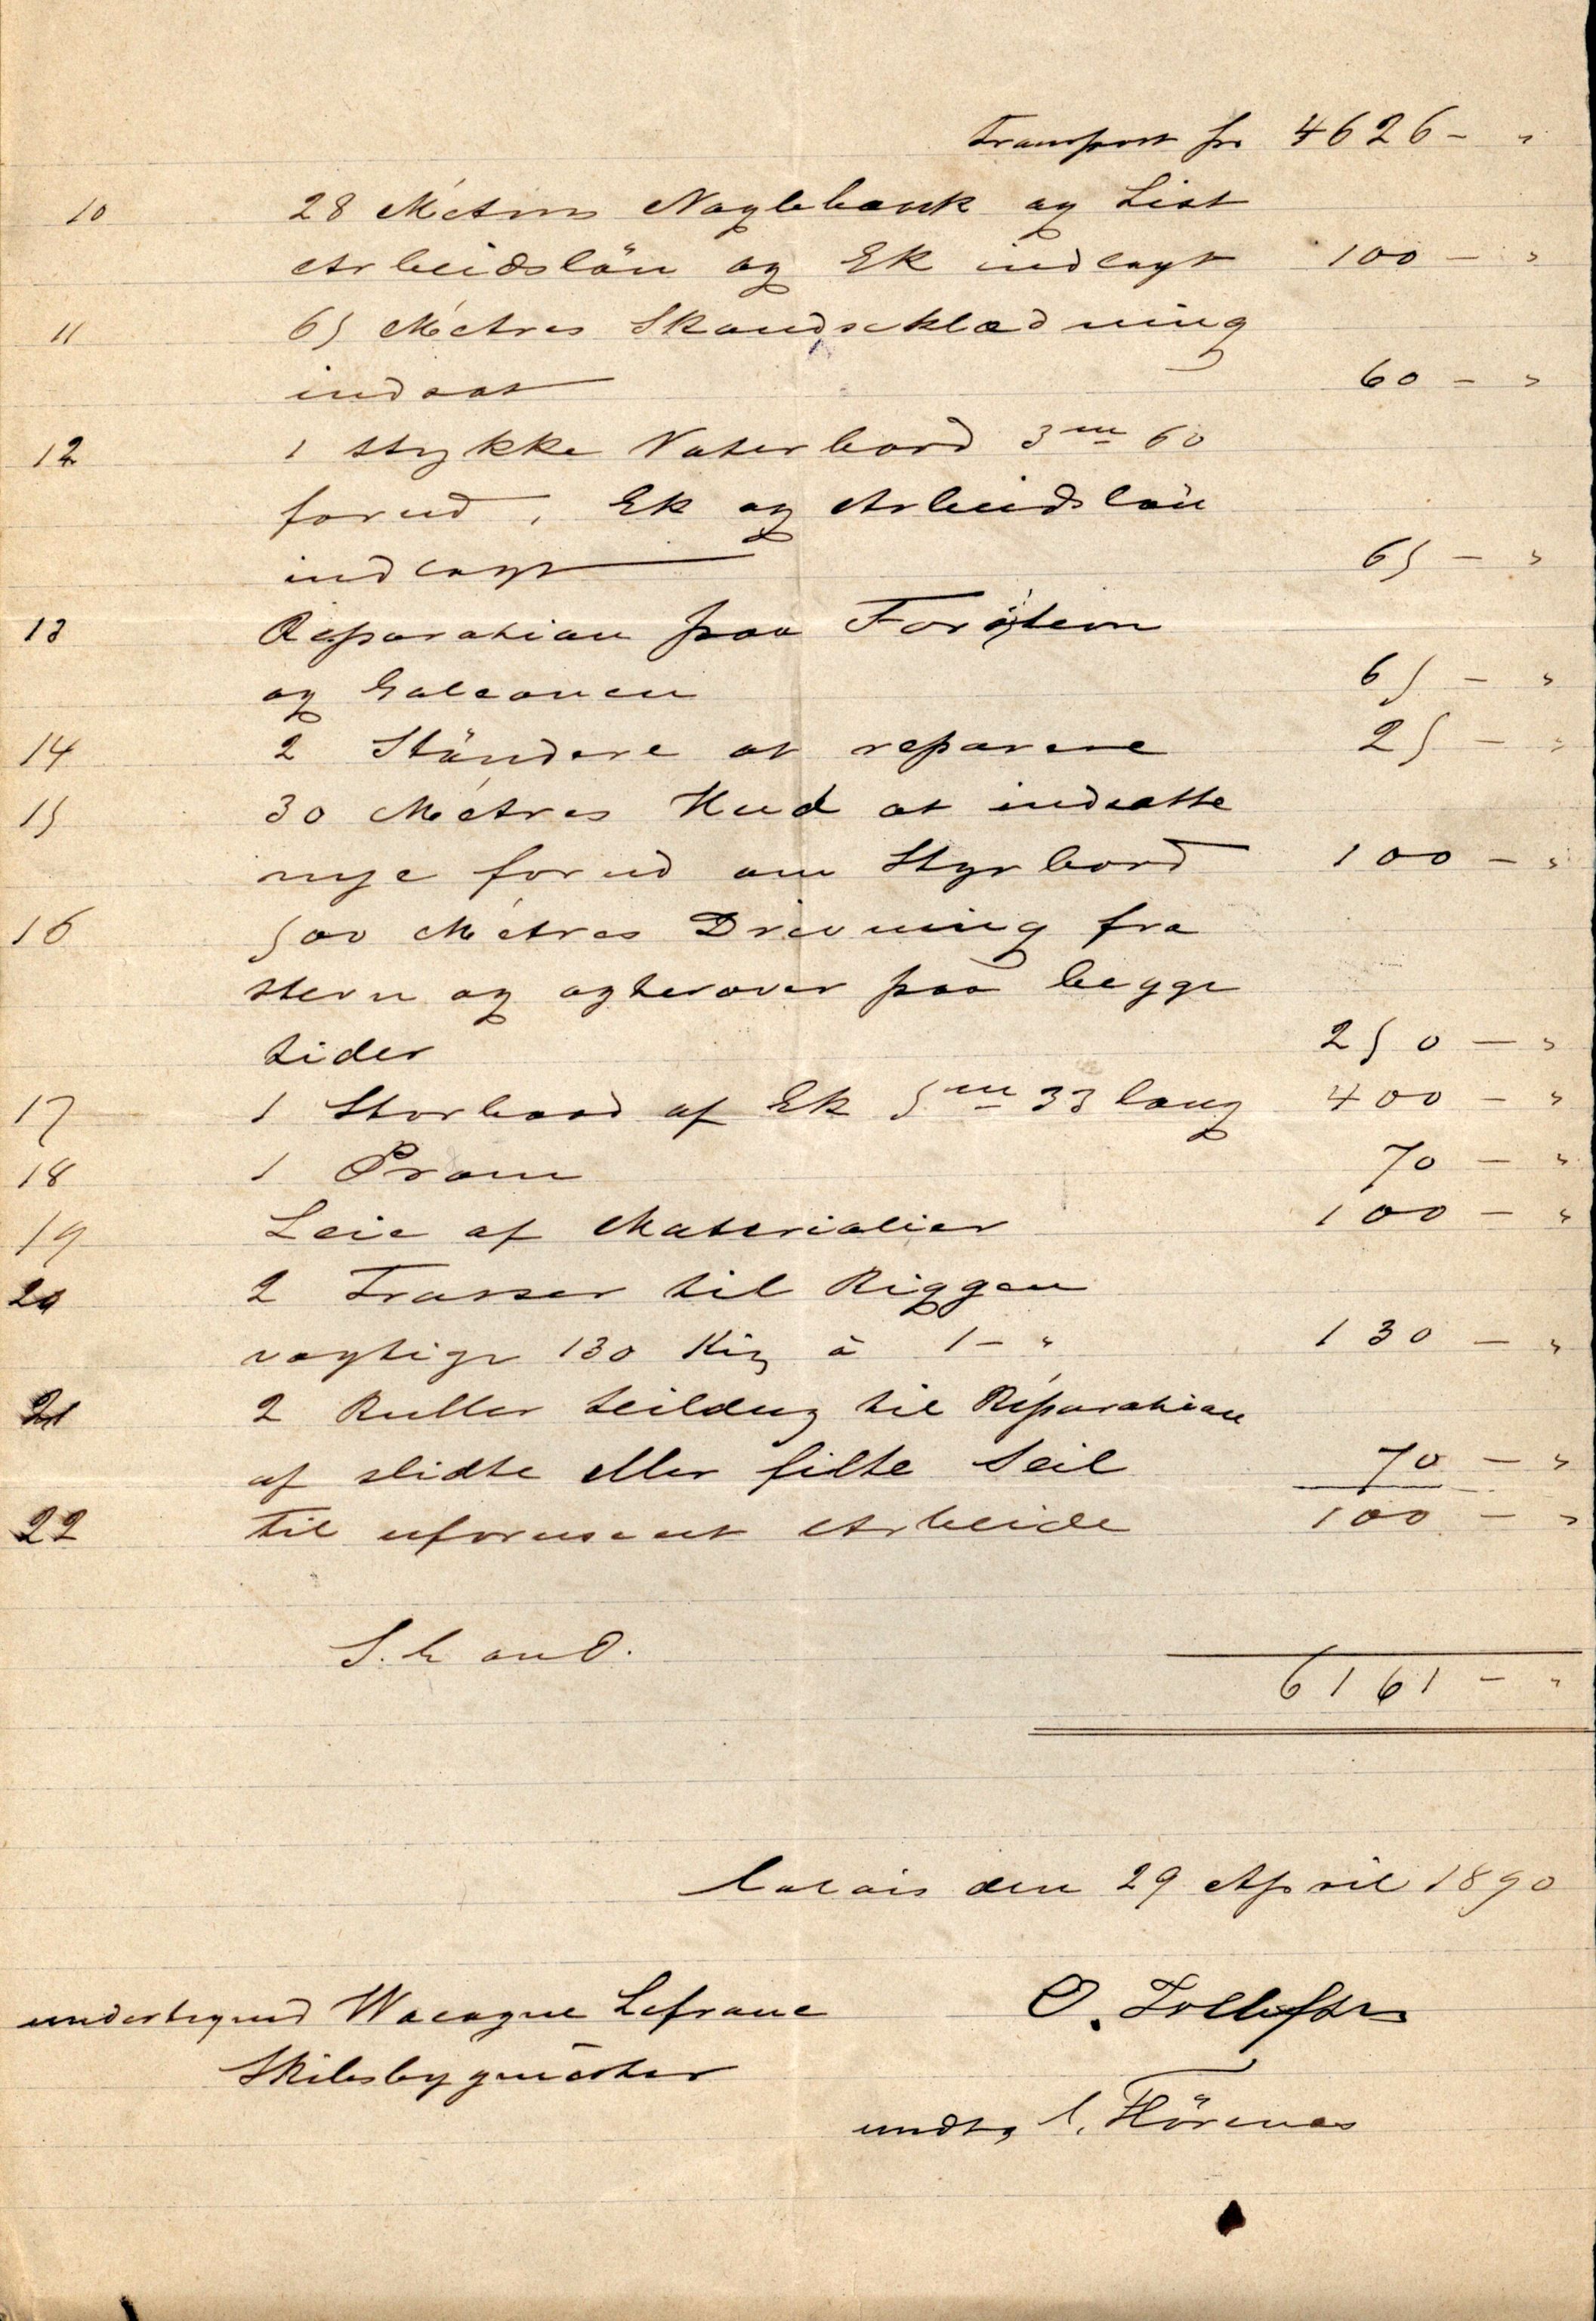 Transport fr 4626 - "
10 28 Métres Naglebænk og List
Arbeidslön og Ek indlagt 100 - "
11 65 Métres Skandseklædning
indsat 60 - "
12 1 stykke Vaterbord 3 m 60
forud, Ek og Arbeidslön
indlagt 65 - "
13 Réparation paa Forstevn
og Galeonen 65 - "
14 2 Støndere at reparere 25 - "
15 30 Métres Hud at indsætte
nye forud om Styrbord 100 - "
16 500 Métres Drivning fra
stevn og agterover paa begge
sider 250 - "
17 1 Storbaad af Ek 5 m 33 lang 400 - "
18 1 Pram 70 - "
19 Leie af Materialier 100 - "
20 2 Trosser til Riggen
vægtige 130 Kig à 1 - " 130 - "
21 2 Ruller Seildug til Réparation
af slidte eller filte Seil 70 - "
22 til uforuseet Arbeide 100 - "
S. E. and O.
6161 - "
Calais den 29 April 1890
undertegned Wacogne Lefranc O. Tollefsen
Skibsbygmester
undtg C. Thörenas